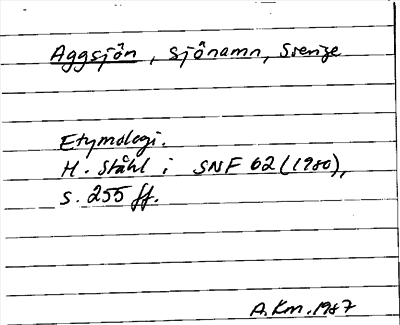 Aggsjön, sjönamn, Sverige
Etymologi.
H. Ståhl i SNF 62 (1980),
s. 255 ff.
A.Km.1987